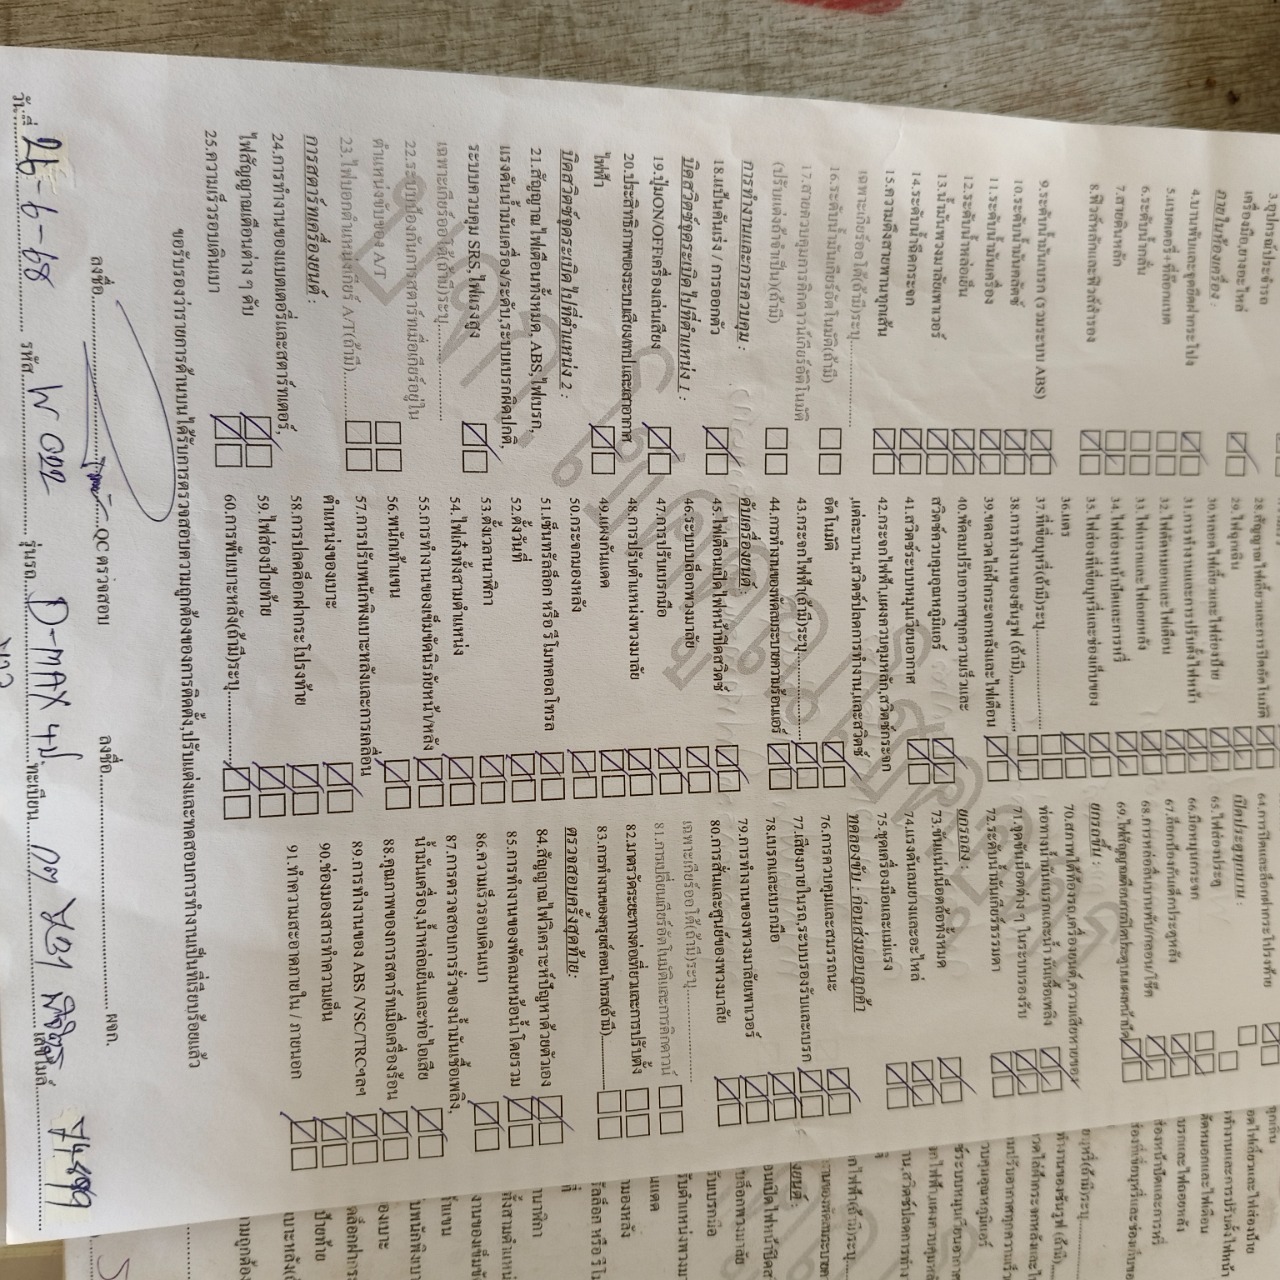 3.อุปกรณ์ประจำรถ
เครื่องมือ,ยางอะไหล่
ภายในห้องเครื่อง :
4.บานพับและชุดยึดฝากระโปง
5.แบตเตอรี่+ที่ล๊อกแบต
6.ระดับน้ำกลั่น
7.สายดินหลัก
8.ฟิวส์หลักและฟิวส์สำรอง
9.ระดับน้ำมันเบรก (รวมระบบ ABS)
10.ระดับน้ำมันคลัตช์
11.ระดับน้ำมันเครื่อง
12.ระดับน้ำหล่อเย็น
13.น้ำมันพวงมาลัยเพาเวอร์
14.ระดับน้ำฉีดกระจก
15.ความตึงสายพานทุกเส้น
เฉพาะเกียร์ออโต้(ถ้ามี)ระบุ..............
16.ระดับน้ำมันเกียร์อัตโนมัติ(ถ้ามี)
17.สายควบคุมการคิกดาวน์เกียร์อัตโนมัติ
(ปรับแต่งถ้าจำเป็น)(ถ้ามี)
การทำงานและการควบคุม :
18.แป้นคันเร่ง / การออกตัว
บิดสวิตช์จุดระเบิดไปที่ตำแหน่ง 1 :
19.ปุ่มON/OFFเครื่องเล่นเสียง
20.ประสิทธิภาพของระบบเสียง/เทปและเสาอากาศ
ไฟฟ้า
บิดสวิตช์จุดระเบิดไปที่ตำแหน่ง 2 :
21.สัญญาณไฟเตือนทั้งหมด, ABS,ไฟเบรก,
แรงดันน้ำมันเครื่อง/ระดับ,ระบบเบรกผิดปกติ,
ระบบควบคุม SRS,ไฟแรงสูง
เฉพาะเกียร์ออโต้(ถ้ามี)ระบุ..............
22.ระบบป้องกันการสตาร์ทเมื่อเกียร์อยู่ใน
ตำแหน่งขับของ A/T
23.ไฟบอกตำแหน่งเกียร์ A/T(ถ้ามี)..............
การสตาร์ทเครื่องยนต์ :
24.การทำงานของแบตเตอรี่และสตาร์ทเตอร์,
ไฟสัญญาณเตือนต่าง ๆ ดับ
25.ความเร็วรอบเดินเบา
28.สัญญาณไฟเลี้ยวและการปิดอัตโนมัติ
29.ไฟฉุกเฉิน
30.หลอดไฟเลี้ยวและไฟส่องป้าย
31.การทำงานและการปรับตั้งไฟหน้า
32.ไฟตัดหมอกและไฟเตือน
33.ไฟเบรกและไฟถอยหลัง
34.ไฟส่องหน้าปัดและการหรี่
35.ไฟส่องที่เขี่ยบุหรี่และช่องเก็บของ
36.แตร
37.ที่เขี่ยบุหรี่(ถ้ามี)ระบุ..............
38.การทำงานของซันรูฟ (ถ้ามี)..............
39.ขดลวดไล่ฝ้ากระจกหลังและไฟเตือน
40.พัดลมปรับอากาศทุกความเร็วและ
สวิตช์ควบคุมอุณหภูมิแอร์
41.สวิตช์ระบบหมุนเวียนอากาศ
42.กระจกไฟฟ้า,แผงควบคุมหลัก,สวิตช์กระจก
,แต่ละบาน,สวิตช์ปลดการทำงาน,และสวิตช์
อัตโนมัติ
43.กระจกไฟฟ้า(ถ้ามี)ระบุ..............
44.การทำงานของพัดลมระบายความร้อนแอร์
ดับเครื่องยนต์ :
45.ไฟเตือนเปิดไฟหน้า/ปิดสวิตช์
46.ระบบบล็อกพวงมาลัย
47.การปรับเบรกมือ
48.การปรับตำแหน่งพวงมาลัย
49.แผงกันแดด
50.กระจกมองหลัง
51.เซ็นทรัลล็อก หรือ รีโมทคอลโทรล
52.ตั้งวันที่
53.ตั้งเวลานาฬิกา
54.ไฟเก๋งทั้งสามตำแหน่ง
55.การทำงานของเข็มขัดนิรภัยหน้า/หลัง
56.พนักเท้าแขน
57.การปรับพนักพิงเบาะหลังและการเคลื่อน
ตำแหน่งของเบาะ
58.การปลดล็อกฝากระโปรงท้าย
59.ไฟส่องป้ายท้าย
60.การพับเบาะหลัง(ถ้ามี)ระบุ..............
64.การปิดและล็อกฝากระโปรงท้าย
เปิดประตูทุกบาน :
65.ไฟส่องประตู
66.มือหมุนกระจก
67.ล็อกป้องกันเด็กประตูหลัง
68.การหล่อลื่นบานพับ/กลอน/รีซีท
69.ไฟสัญญาณเตือนการปิดประตูบนแผงหน้าปัด
ยกรถขึ้น :
70.สภาพใต้ท้องรถ,เครื่องยนต์,ความเสียหายของ
ท่อทางน้ำมันเบรกและน้ำมันเชื้อเพลิง
71.จุดขันน็อตต่าง ๆ ในระบบรองรับ
72.ระดับน้ำมันเกียร์ธรรมดา
ยกรถลง :
73.ขันแน่นน๊อตล้อทั้งหมด
74.แรงดันลมยางและอะไหล่
75.ชุดเครื่องมือและแม่แรง
ทดลองขับ : ก่อนส่งมอบลูกค้า
76.การควบคุมและสมรรถนะ
77.เสียงภายในรถ,ระบบรองรับและเบรก
78.เบรกและเบรกมือ
79.การทำงานของพวงมาลัยเพาเวอร์
80.การสั่นและศูนย์ของพวงมาลัย
เฉพาะเกียร์ออโต้(ถ้ามี)ระบุ..............
81.การเปลี่ยนเกียร์อัตโนมัติและการคิกดาวน์
82.มาตรวัดระยะทางต่อเที่ยวและการปรับตั้ง
83.การทำงานของครุยส์คอนโทรล(ถ้ามี)..............
ตรวจสอบครั้งสุดท้าย:
84.สัญญาณไฟวิเคราะห์ปัญหาด้วยตัวเอง
85.การทำงานของพัดลมหม้อน้ำโดยรวม
86.ความเร็วรอบเดินเบา
87.การตรวจสอบการรั่วของน้ำมันเชื้อเพลิง,
น้ำมันเครื่อง,น้ำหล่อเย็นและท่อไอเสีย
88.คุณภาพของการสตาร์ทเมื่อเครื่องร้อน
89.การทำงานของ ABS /VSC/TRCฯลฯ
90.ช่องมองสารทำความเย็น
91.ทำความสะอาดภายใน / ภายนอก
ขอรับรองว่ารายการด้านบนได้รับการตรวจสอบความถูกต้องของการติดตั้ง,ปรับแต่งและทดสอบการทำงานเป็นที่เรียบร้อยแล้ว
ลงชื่อ..............QC ตรวจสอบ ลงชื่อ..............ผจก.
วันที่ 26-6-68 รหัส W 022 รุ่นรถ D-MAX 4ป. ทะเบียน เลขไมล์ 74,899